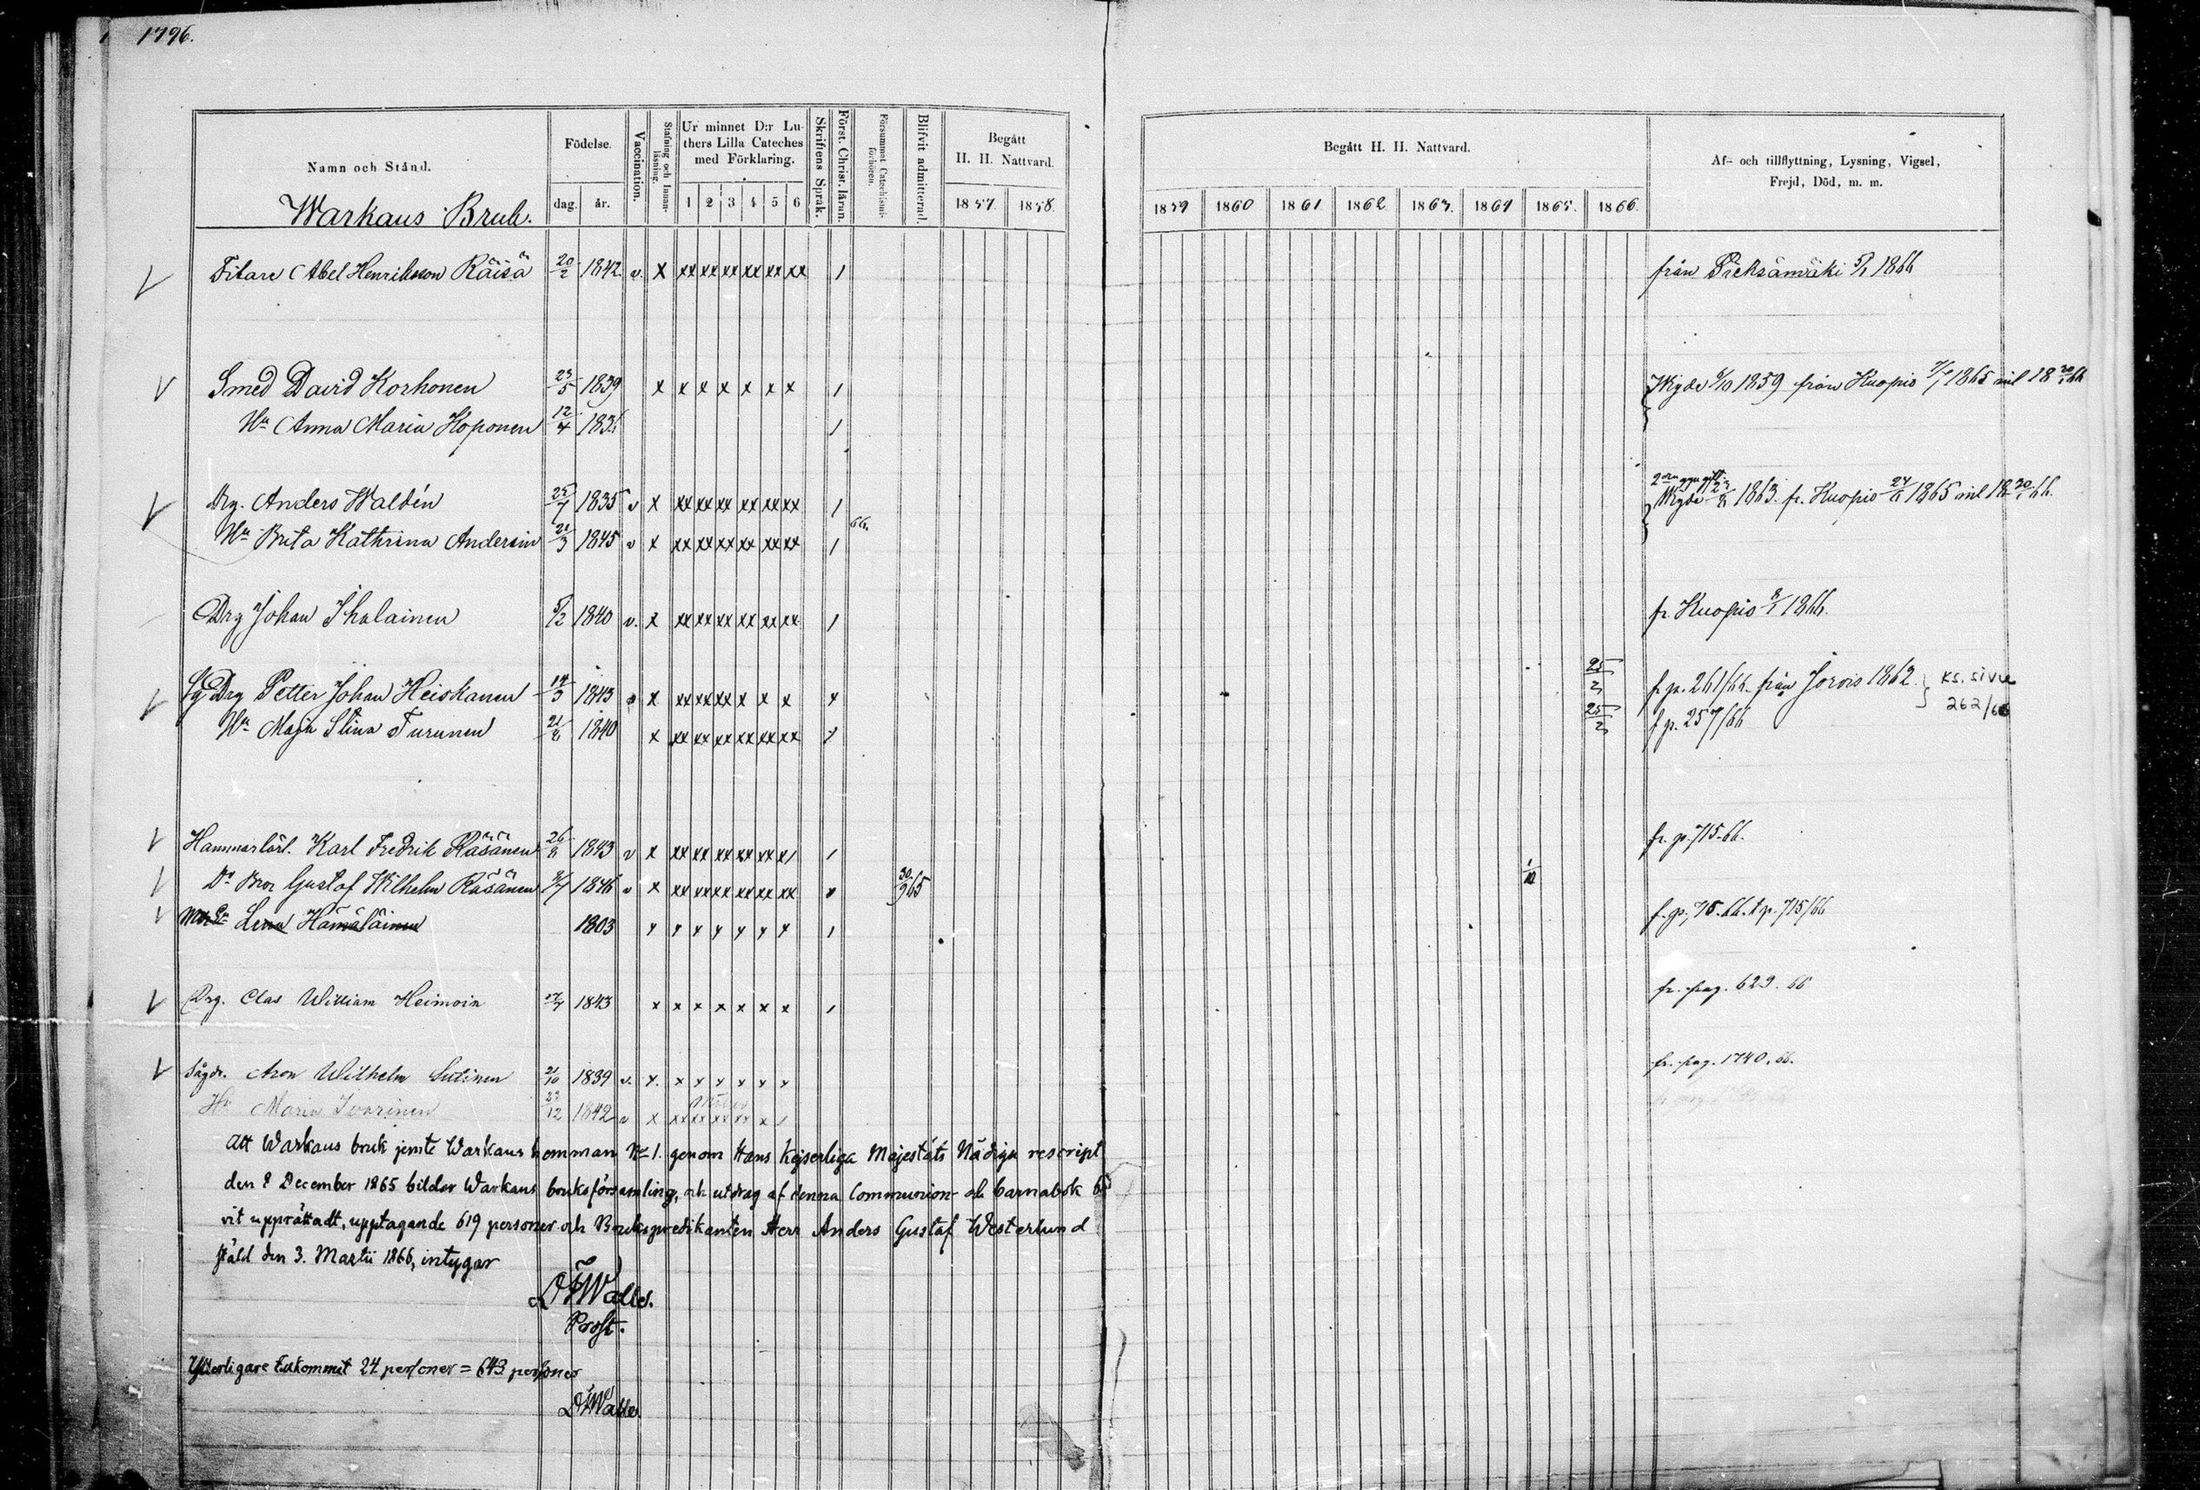 1796.
Namn och Stånd.
Födelse.
dag.
år.
Vaccination.
Stafning och Innan-läsning.
Ur minnet D:r Lu-
thers Lilla Cateches
med Förklaring.
1 2 3 4 5 6
Skriftens Språk.
Först. Christ. läran.
Försummat Catechismi-förhören.
Blifvit admitterad.
Begått
H. H. Nattvard.
1857. 1858.
Begått H. H. Nattvard.
1859 1860 1861 1862 1863. 1864 1865. 1866.
Af- och tillflyttning, Lysning, Vigsel,
Frejd, Död, m. m.
Warkaus Bruk.
Filare Abel Henriksson Räisä 20/2 1842 v. x xx xx xx xx xx xx / från Pieksämäki 5/1 1866
Smed David Korhonen 23/5 1839 x x x x x x x / Wigde 9/10 1859 från Kuopio 1865
Hu Anna Maria Hoponen 12/4 183 /
Drg. Anders Waldén 25/7 1835 v x xx xx xx xx xx xx / Wigde 1863. fr. Kuopio 1865
Hu Brita Kathrina Andersin 21/3 1845 v x xx xx xx xx xx xx / 66.
Drg Johan Ihalainen 5/2 1840 v. x xx xx xx xx xx xx / fr. Kuopio 8/1 1866.
Drg Petter Johan Heiskanen 14/3 1843 x xx xx xx x x x 25/2 f. p. 261/66. från Jorois 1862. } ks. sivu
262/66
Hu Maja Stina Turunen 21/8 1840 x xx xx xx xx xx xx 25/2 f p. 257/66
Hammarlärl. Karl Fredrik Räsänen 26/8 1843 v x xx xx xx xx xx x/ / fr. p. 715-66.
Do Bror Gustaf Wilhelm Räsänen 1846 v x xx xx xx xx xx xx 30/9 65 1/10
Lena Hämäläinen 1803 x x x x x x x / f. p. 715-66. t p. 715/66
Drg. Clas William Heimoin 1843 x x x x x x x / fr. pag. 629. 66
Sågdr. Aron Wilhelm Sutinen 21/10 1839 v. x. x x x x x x fr. pag. 1740. 66.
Hu Maria Ivarinen 23/12 1842 v x xx xx xx xx x /
Att Warkaus bruk jemte Warkaus hemman No 1. genom Hans Kejserliga Majestäts Nådiga rescript
den 8 December 1865 bildar Warkaus bruksförsamling, och utdrag af denna Communion- och barnabok bli
vit upprättadt, upptagande 619 personer och Brukspredikanten Herr Anders Gustaf Westerlund
stäld den 3. Martii 1866, intygar
Walle.
Prost.
Ytterligare tillkommit 24 personer = 643 personer
Walle.